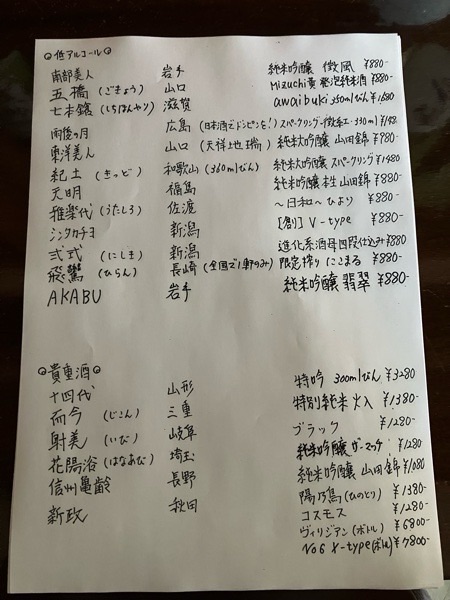 ◎低アルコール◎
南部美人 岩手 純米吟醸 微風 ¥880-
五橋(ごきょう) 山口 Mizuchi 発泡純米酒 ¥880-
七本鎗(しちほんやり) 滋賀 awaibuki 350mlびん ¥1680
雨後の月 広島 (日本酒でドンピンを!) スパークリング 330ml
東洋美人 山口 (天祥地瑞) 純米大吟醸 山田錦 ¥980-
紀土(きっど) 和歌山 (360mlびん) 純米大吟醸 スパークリング ¥1480
天明 福島 純米吟醸 本生 山田錦 ¥880-
雅楽代(うたしろ) 佐渡 〜日和〜 ひより ¥880-
シンタカチヨ 新潟 [創] V-type ¥880-
弐式(にしき) 新潟 進化系酒母四段仕込み ¥880
飛鸞(ひらん) 長崎 (全国で1軒のみ) 限定搾り にこまる ¥880-
AKABU 岩手 純米吟醸 翡翠 ¥880-
◎貴重酒◎
十四代 山形 特吟 300mlびん ¥3280
而今(じこん) 三重 特別純米 火入 ¥1380-
射美(いび) 岐阜 ブラック ¥1280-
花陽浴(はなあび) 埼玉 純米吟醸 ¥1280
信州亀齢 長野 純米吟醸 山田錦 ¥1080
新政 秋田 陽乃鳥(ひのとり) ¥1380
コスモス ¥1280-
ヴィリジアン(ボトル) ¥6800-
No6 X-type(ボトル) ¥7800-